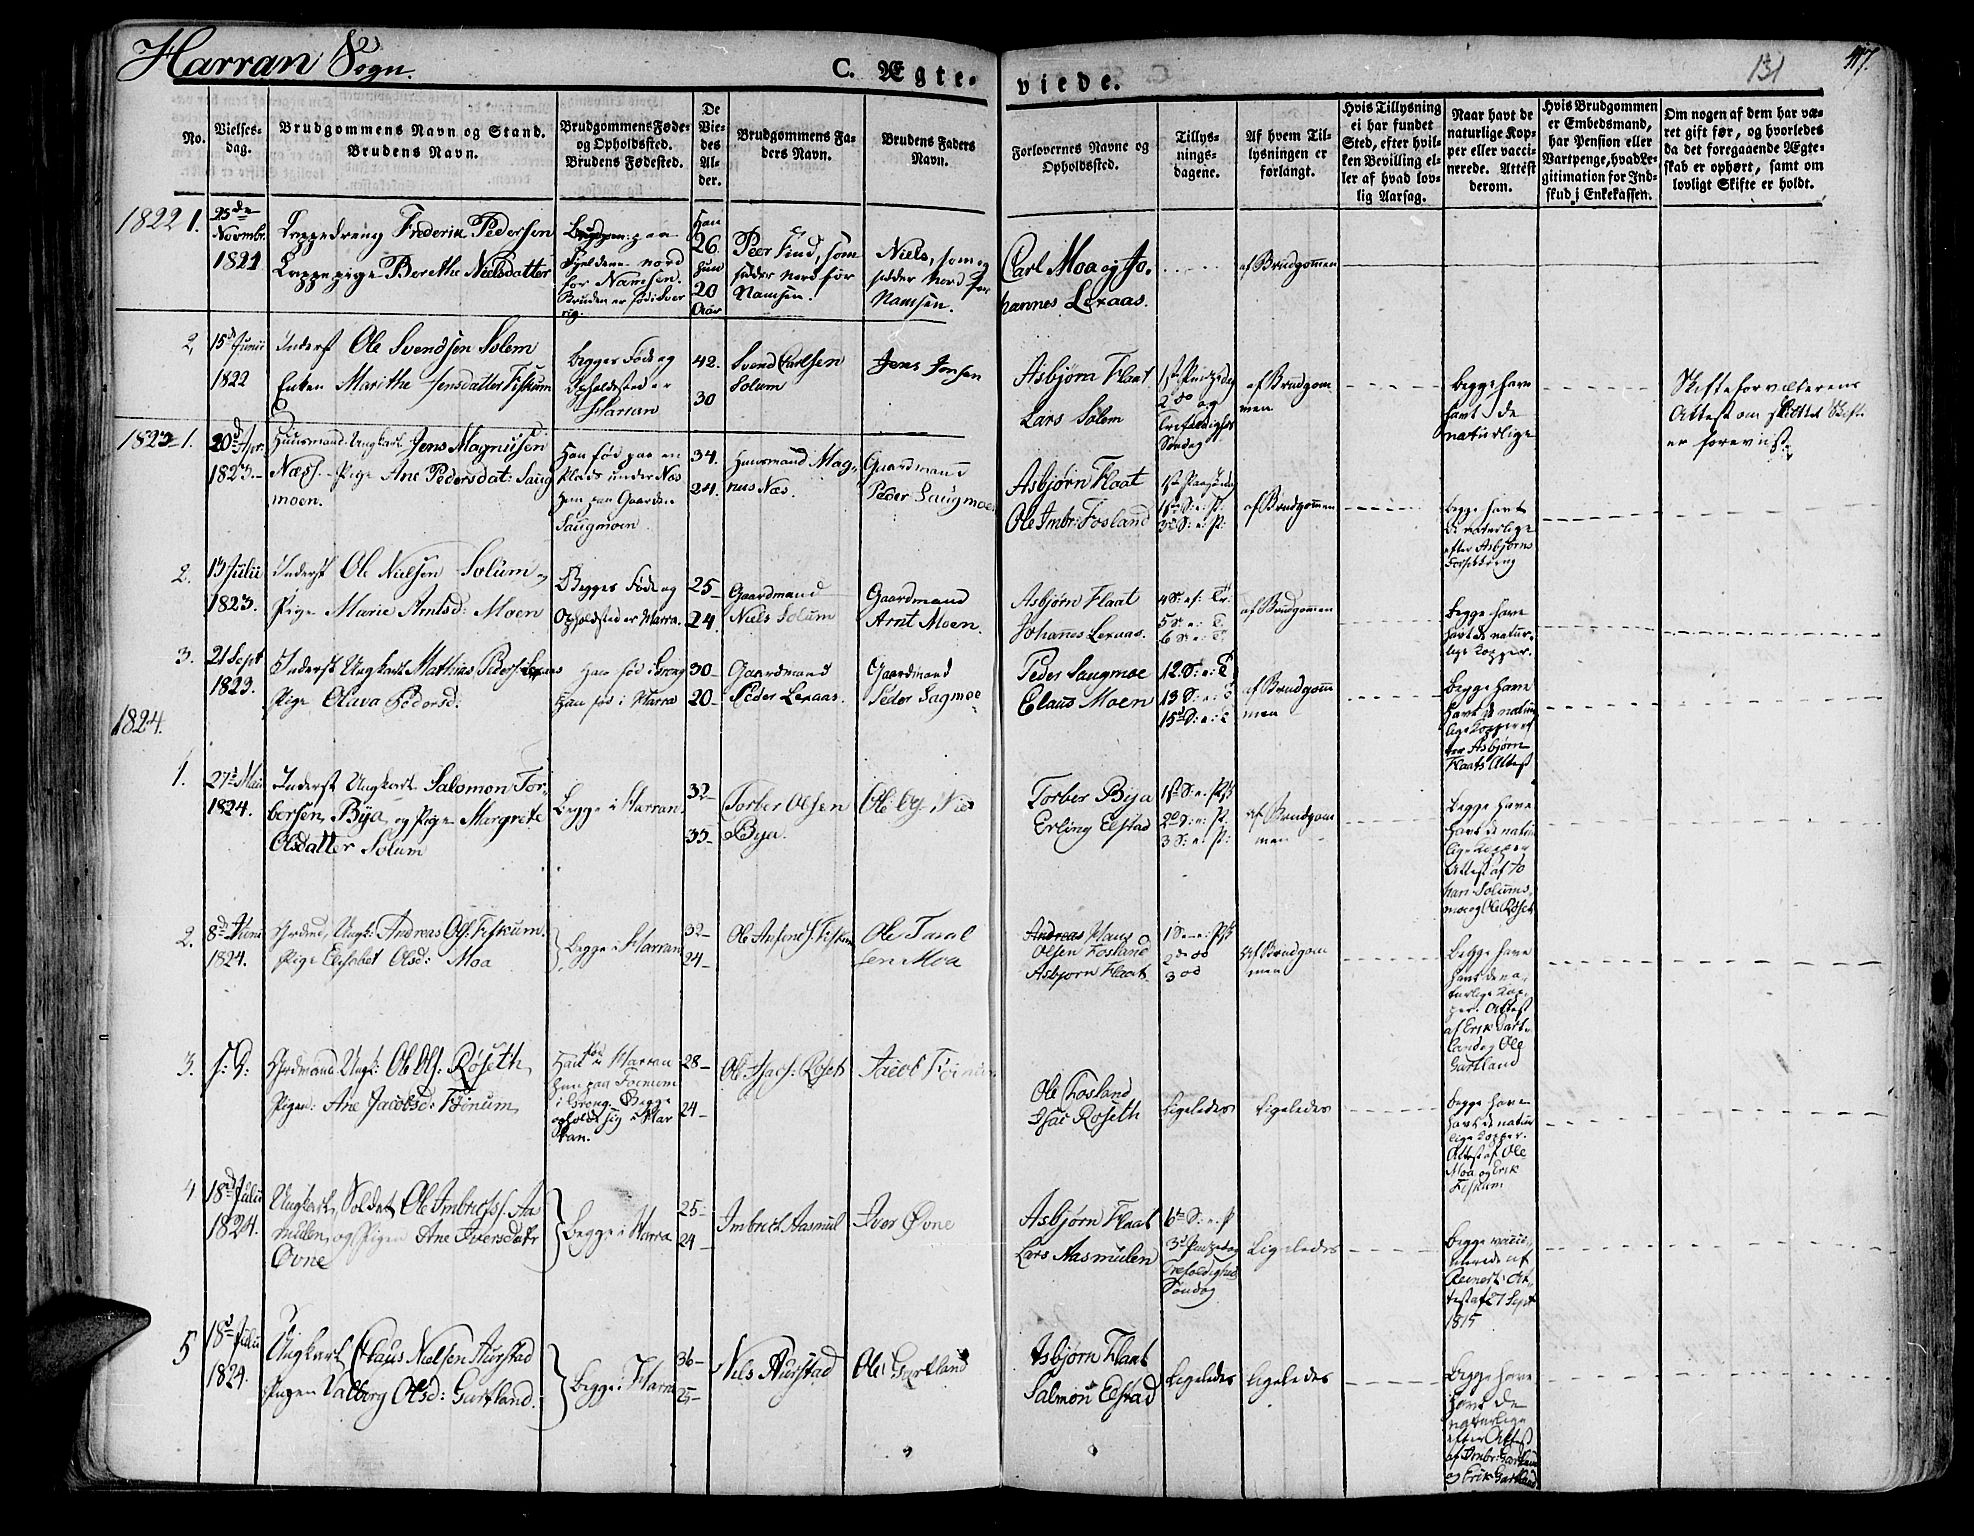 Harran Sogn.
C. Ægte-
viede.
131
417.
No.
Vielses-
dag.
Brudgommens Navn og Stand.
Brudens Navn.
Brudgommens Føde-
og Opholdssted.
Brudens Fødested.
De
Vie-
des
Al-
der.
Brudgommens Fa-
ders Navn.
Brudens Faders
Navn.
Forlovernes Navne og
Opholdssted.
Tillys-
nings-
dagene.
Af hvem Til-
lysningen er
forlangt.
Hvis Tillysning
ei har fundet
Sted, efter hvil-
ken Bevilling el-
ler af hvad lov-
lig Aarsag.
Naar havt de
naturlige Kop-
per eller vacci-
nerede. Attest
derom.
Hvis Brudgommen
er Embedsmand,
har Pension eller
Vartpenge, hvad Le-
gitimation for Ind-
skud i Enkekassen.
Om nogen af dem har væ-
ret gift før, og hvorledes
da det foregaaende Ægte-
skab er ophørt, samt om
lovligt Skifte er holdt.
1822 1.
25de
Novmbr.
1821
Lappedreng Frederik Pedersen
Lappepige Berethe Nielsdatter
paa
Fjeldene nord
for Namsen.
Bruden er fød i Sver
rig.
Han
26
hun
20
Aar
Peer Find, som
sidder Nord for
Namsen.
Niels, som og
sidder Nord for
Namsen.
Carl Moa og Jo-
hannes Lexaas.
af Brudgomen
2. 15d Junii
1822
Inderst Ole Svendsen Solem
Enken Marithe Jensdatter Fiskum
Begges Føde og
Opholdsted er
Harran
42.
30
Svend Carlsen
Solum
Jens Jensen
Asbjørn Flaat
Lars Solem
1st Pindsedag
2do og
Trefoldigheds
Søndag
af Brudgom
men
Begge have
havt de
naturlige
Skifteforvalterens
Attest om sluttet Skifte
er forevist.
1823 1.
20d Apr.
1823.
Huusmand Ungkarl Jens Magnusen
Næss. Pige Ane Pedersdat: Saug
moen.
Han fød paa en
Plads under Næs
Hun paa Gaarden
Saugmoen
34.
24.
Huusmand Mag-
nus Næs.
Gaardmand
Peder Saugmoe
Asbjørn Flaat
Ole Imbr: Fosland
1st Paaskedag
1ste S: e: P:
3d S: e: P:
af Brudgommen
Begge havt
de naturlige
efter Asbjørns
Forsikkring
2. 13 Julii
1823.
Inderst Ole Nielsen Solum
Pige Marie Arntsd: Moen
Begges Føde og
Opholdsted er Harra.
25
24.
Gaardmand
Niels Solum
Gaardmand
Arnt Moen.
Asbjørn Flaat
Johanes Lexaas.
4 S: ef: Tr:
5 S: e: T.
6 S: e: T
af Brudgommen
Begge have
havt de natur-
lige Kopper.
3. 21 Sept
1823.
Inderst Ungkarl Mathias Peders: Lexaas
Pige Olava Pedersd:
Han fød i Grong
Hun fød i Harra
30
20
Gaardmand
Peder Lexaas.
Gaardmand
Peder Sagmoe
Peder Saugmoe
Claus Moen
12. S: e: T
13 S: e: T
15d S: e: T
af Brudgom
men
Begge have
havt de natur
lige Kopper ef
ter Asbjørn
Flaats Attest
1824.
1. 27d Maii
1824.
Inderst Ungkarl Salomon Tor-
bersen Bya, og Pige Margrete
Olsdatter Solum
Begge i Harran
32
33
Torber Olsen
Bya.
Torber Bya
Erling Elstad
1st S: e: Psk
2d S: e: P:
3 S: e: P:
af Brudgom
men
Begge have
havt de natur
lige Kopper
Attest af Jo
han Solums-
moe og Ole Røset
2. 8d Juni
1824.
Grdmd, Ungk: Andreas Ols: Fiskum.
Pige Elisabet Olsd: Moa
Begge i Harran
32
24
Ole Fiskum
Ole Taral
sen Moa
Andreas Klaus
Olsen Fosland
Asbjørn Flaat
1 S. e: Psk
2 do
3 do
af Brudgom
men
Begge have
havt de na-
turlige Kop-
per. Attest
af Erik Gart-
land og Ole
Gartland
3. s: D:
Grdmand Ungk: Ole Ols: Røseth
Pigen: Ane Jacobsd: Fornum
Han fra Harran
Hun paa Fornum
i Grong. Begge
opholdt sig i Har
ran.
28
24
Ole Isacs: Røset
Jacob
Ole Fosland
Isac Roseth
Ligeledes
Ligeledes
Begge have
havt de natur
lige Kopper.
Attest af Ole
Moa og Erik
Fiskum
4 18d Julii
1824.
Ungkarl, Soldat Ole Imbrichs: Aa
mulen, og Pigen Ane Iversdatr
Øvne
Begge i Harra
25
24
Imbrich Aasmul
Iver Øvne
Asbjørn Flaat
Lars Aasmulen
6te S: e: P
3d Pindsedag
Trefoldigheds
Søndag
Ligeledes
Begge vacci-
nerede af
Reinert. At-
test af 27 Sept
1815
5 18d Julii
1824.
Ungkarl Claus Nielsen Aurstad
Pigen Valborg Olsd: Gartland.
Begge i Harra
36
25
Nils Aurstad
Ole Gartland
Asbjørn Flaat
Salmon Elstad
Ligeledes
Ligeledes
Begge have
havt de
naturlige
efter Attest
af Imbr: Gartland
og Erik Gartland